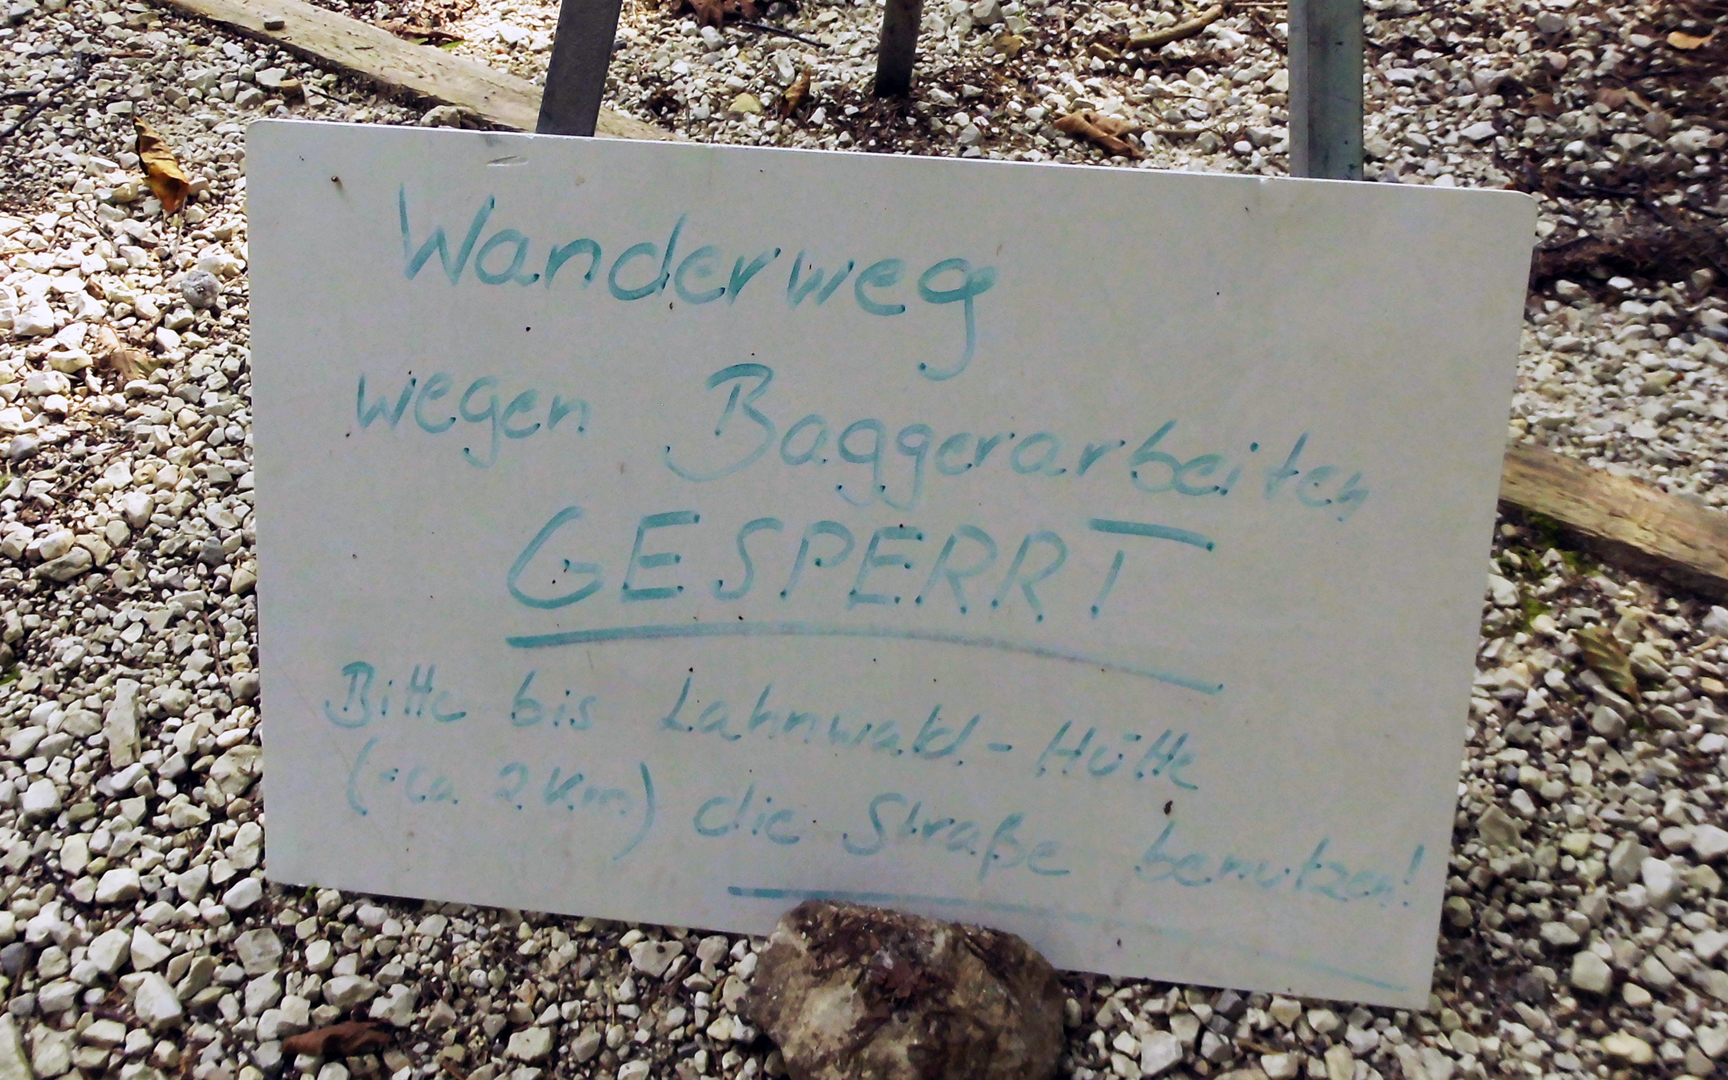 Wanderweg
wegen Baggerarbeiten
GESPERRT
Bitte bis Lahnwald-Hütte
(ca 2 Km) die Straße benutzen!